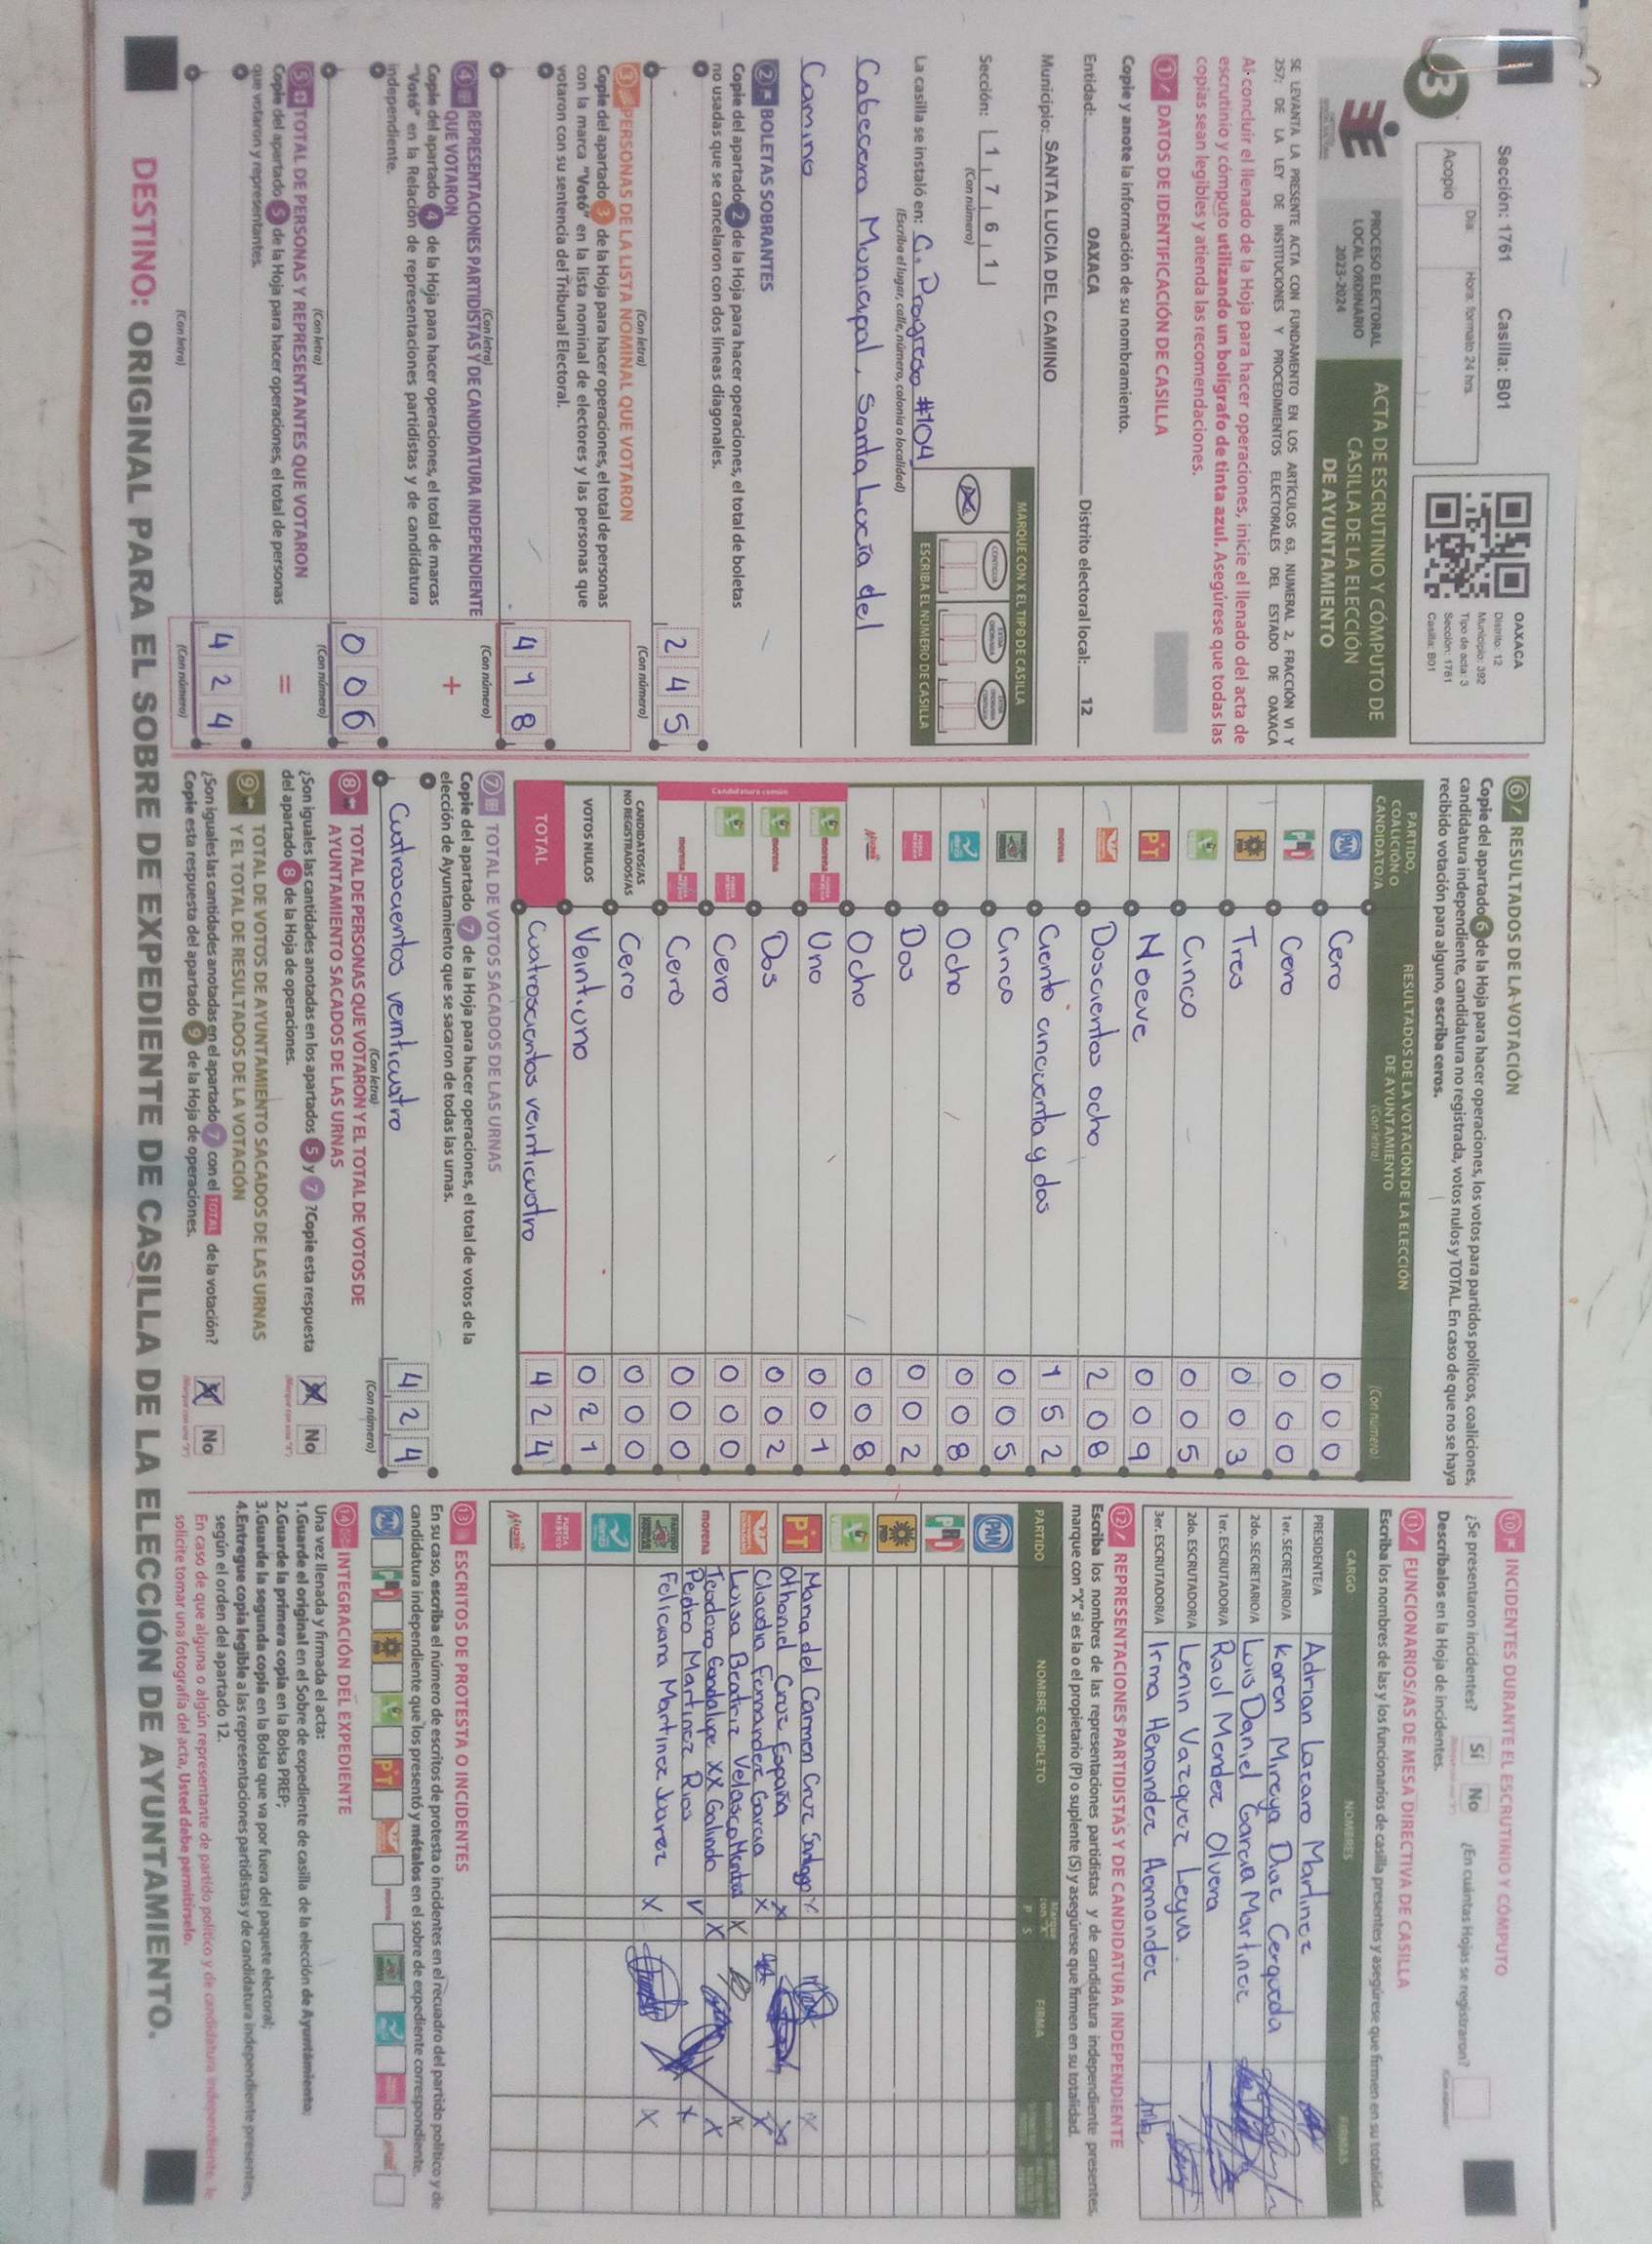 3
Sección: 1761 Casilla: B01
Día: Hora: formato 24 hrs.
Acopio
OAXACA
Distrito: 12
Municipio: 392
Tipo de acta: 3
Sección: 1761
Casilla: B01
PROCESO ELECTORAL
LOCAL ORDINARIO
2023-2024
ACTA DE ESCRUTINIO Y CÓMPUTO DE
CASILLA DE LA ELECCIÓN
DE AYUNTAMIENTO
SE LEVANTA LA PRESENTE ACTA CON FUNDAMENTO EN LOS ARTÍCULOS 63, NUMERAL 2, FRACCIÓN VI Y
257; DE LA LEY DE INSTITUCIONES Y PROCEDIMIENTOS ELECTORALES DEL ESTADO DE OAXACA
Al concluir el llenado de la Hoja para hacer operaciones, inicie el llenado del acta de
escrutinio y cómputo utilizando un bolígrafo de tinta azul. Asegúrese que todas las
copias sean legibles y atienda las recomendaciones.
1 DATOS DE IDENTIFICACIÓN DE CASILLA
Copie y anote la información de su nombramiento.
Entidad: OAXACA Distrito electoral local: 12
Municipio: SANTA LUCIA DEL CAMINO
Sección: 1 7 6 1
(Con número)
MARQUE CON X EL TIPO DE CASILLA
CONTIGUA
ESCRIBA EL NÚMERO DE CASILLA
La casilla se instaló en: C. Progreso #104
(Escriba el lugar, calle, número, colonia o localidad)
Cabecera Municipal, Santa Lucía del
Camino
2 BOLETAS SOBRANTES
Copie del apartado 2 de la Hoja para hacer operaciones, el total de boletas
no usadas que se cancelaron con dos líneas diagonales.
2 4 5
(Con letra) (Con número)
3 PERSONAS DE LA LISTA NOMINAL QUE VOTARON
Copie del apartado 3 de la Hoja para hacer operaciones, el total de personas
con la marca "Votó" en la lista nominal de electores y las personas que
votaron con su sentencia del Tribunal Electoral.
4 1 8
(Con letra) (Con número)
4 REPRESENTACIONES PARTIDISTAS Y DE CANDIDATURA INDEPENDIENTE
QUE VOTARON
+
Copie del apartado 4 de la Hoja para hacer operaciones, el total de marcas
"Votó" en la Relación de representaciones partidistas y de candidatura
independiente.
0 0 6
(Con letra) (Con número)
5 TOTAL DE PERSONAS Y REPRESENTANTES QUE VOTARON
=
Copie del apartado 5 de la Hoja para hacer operaciones, el total de personas
que votaron y representantes.
4 2 4
(Con letra) (Con número)
6 RESULTADOS DE LA VOTACIÓN
Copie del apartado 6 de la Hoja para hacer operaciones, los votos para partidos políticos, coaliciones,
candidatura independiente, candidatura no registrada, votos nulos y TOTAL. En caso de que no se haya
recibido votación para alguno, escriba ceros.
PARTIDO,
COALICIÓN O
CANDIDATO/A
RESULTADOS DE LA VOTACIÓN DE LA ELECCIÓN
DE AYUNTAMIENTO
(Con letra) (Con número)
PAN Cero 0 0 0
PRI Cero 0 0 0
PRD Tres 0 0 3
Cinco 0 0 5
PT Nueve 0 0 9
Doscientos ocho 2 0 8
morena Ciento cincuenta y dos 1 5 2
Cinco 0 0 5
Ocho 0 0 8
Dos 0 0 2
Mujer Ocho 0 0 8
Candidatura común
morena Uno 0 0 1
morena Dos 0 0 2
Cero 0 0 0
morena Cero 0 0 0
CANDIDATOS/AS
NO REGISTRADOS/AS Cero 0 0 0
VOTOS NULOS Veintiuno 0 2 1
TOTAL Cuatroscientos veinticuatro 4 2 4
7 TOTAL DE VOTOS SACADOS DE LAS URNAS
Copie del apartado 7 de la Hoja para hacer operaciones, el total de votos de la
elección de Ayuntamiento que se sacaron de todas las urnas.
Cuatroscientos veinticuatro 4 2 4
(Con letra) (Con número)
8 TOTAL DE PERSONAS QUE VOTARON Y EL TOTAL DE VOTOS DE
AYUNTAMIENTO SACADOS DE LAS URNAS
¿Son iguales las cantidades anotadas en los apartados 5 y 7 ? Copie esta respuesta
del apartado 8 de la Hoja de operaciones.
X No
9 TOTAL DE VOTOS DE AYUNTAMIENTO SACADOS DE LAS URNAS
Y EL TOTAL DE RESULTADOS DE LA VOTACIÓN
¿Son iguales las cantidades anotadas en el apartado 7 con el TOTAL de la votación?
Copie esta respuesta del apartado 9 de la Hoja de operaciones.
X No
10 INCIDENTES DURANTE EL ESCRUTINIO Y CÓMPUTO
¿Se presentaron incidentes? Sí No ¿En cuántas Hojas se registraron?
Descríbalos en la Hoja de incidentes.
11 FUNCIONARIOS/AS DE MESA DIRECTIVA DE CASILLA
Escriba los nombres de las y los funcionarios de casilla presentes y asegúrese que firmen en su totalidad.
CARGO NOMBRES FIRMAS
PRESIDENTE/A Adrian Lazaro Martinez
1er. SECRETARIO/A Karen Mireya Diaz Cerqueda
2do. SECRETARIO/A Luis Daniel Garcia Martinez
1er. ESCRUTADOR/A Raul Mendez Olvera
2do. ESCRUTADOR/A Lenin Vazquez Leyva
3er. ESCRUTADOR/A Irma Henandez Aernandez
12 REPRESENTACIONES PARTIDISTAS Y DE CANDIDATURA INDEPENDIENTE
Escriba los nombres de las representaciones partidistas y de candidatura independiente presentes,
marque con "X" si es la o el propietario (P) o suplente (S) y asegúrese que firmen en su totalidad.
PARTIDO NOMBRE COMPLETO P S FIRMA
PAN
PRI
PRD
Maria del Carmen Cruz Santiago X
PT Othoniel Cruz España X
Claudia Fernandez Garcia X
Luisa Beatriz Velasco X
morena Teodoro Guadalupe XX Galindo X
Pedro Martinez Rios
Feliciana Martinez Juarez X
Mujer
13 ESCRITOS DE PROTESTA O INCIDENTES
En su caso, escriba el número de escritos de protesta o incidentes en el recuadro del partido político y de
candidatura independiente que los presentó y métalos en el sobre de expediente correspondiente.
14 INTEGRACIÓN DEL EXPEDIENTE
Una vez llenada y firmada el acta:
1.Guarde el original en el Sobre de expediente de casilla de la elección de Ayuntamiento;
2.Guarde la primera copia en la Bolsa PREP;
3.Guarde la segunda copia en la Bolsa que va por fuera del paquete electoral;
4.Entregue copia legible a las representaciones partidistas y de candidatura independiente presentes,
según el orden del apartado 12.
En caso de que alguna o algún representante de partido político y de candidatura independiente, le
solicite tomar una fotografía del acta, Usted debe permitírselo.
DESTINO: ORIGINAL PARA EL SOBRE DE EXPEDIENTE DE CASILLA DE LA ELECCIÓN DE AYUNTAMIENTO.